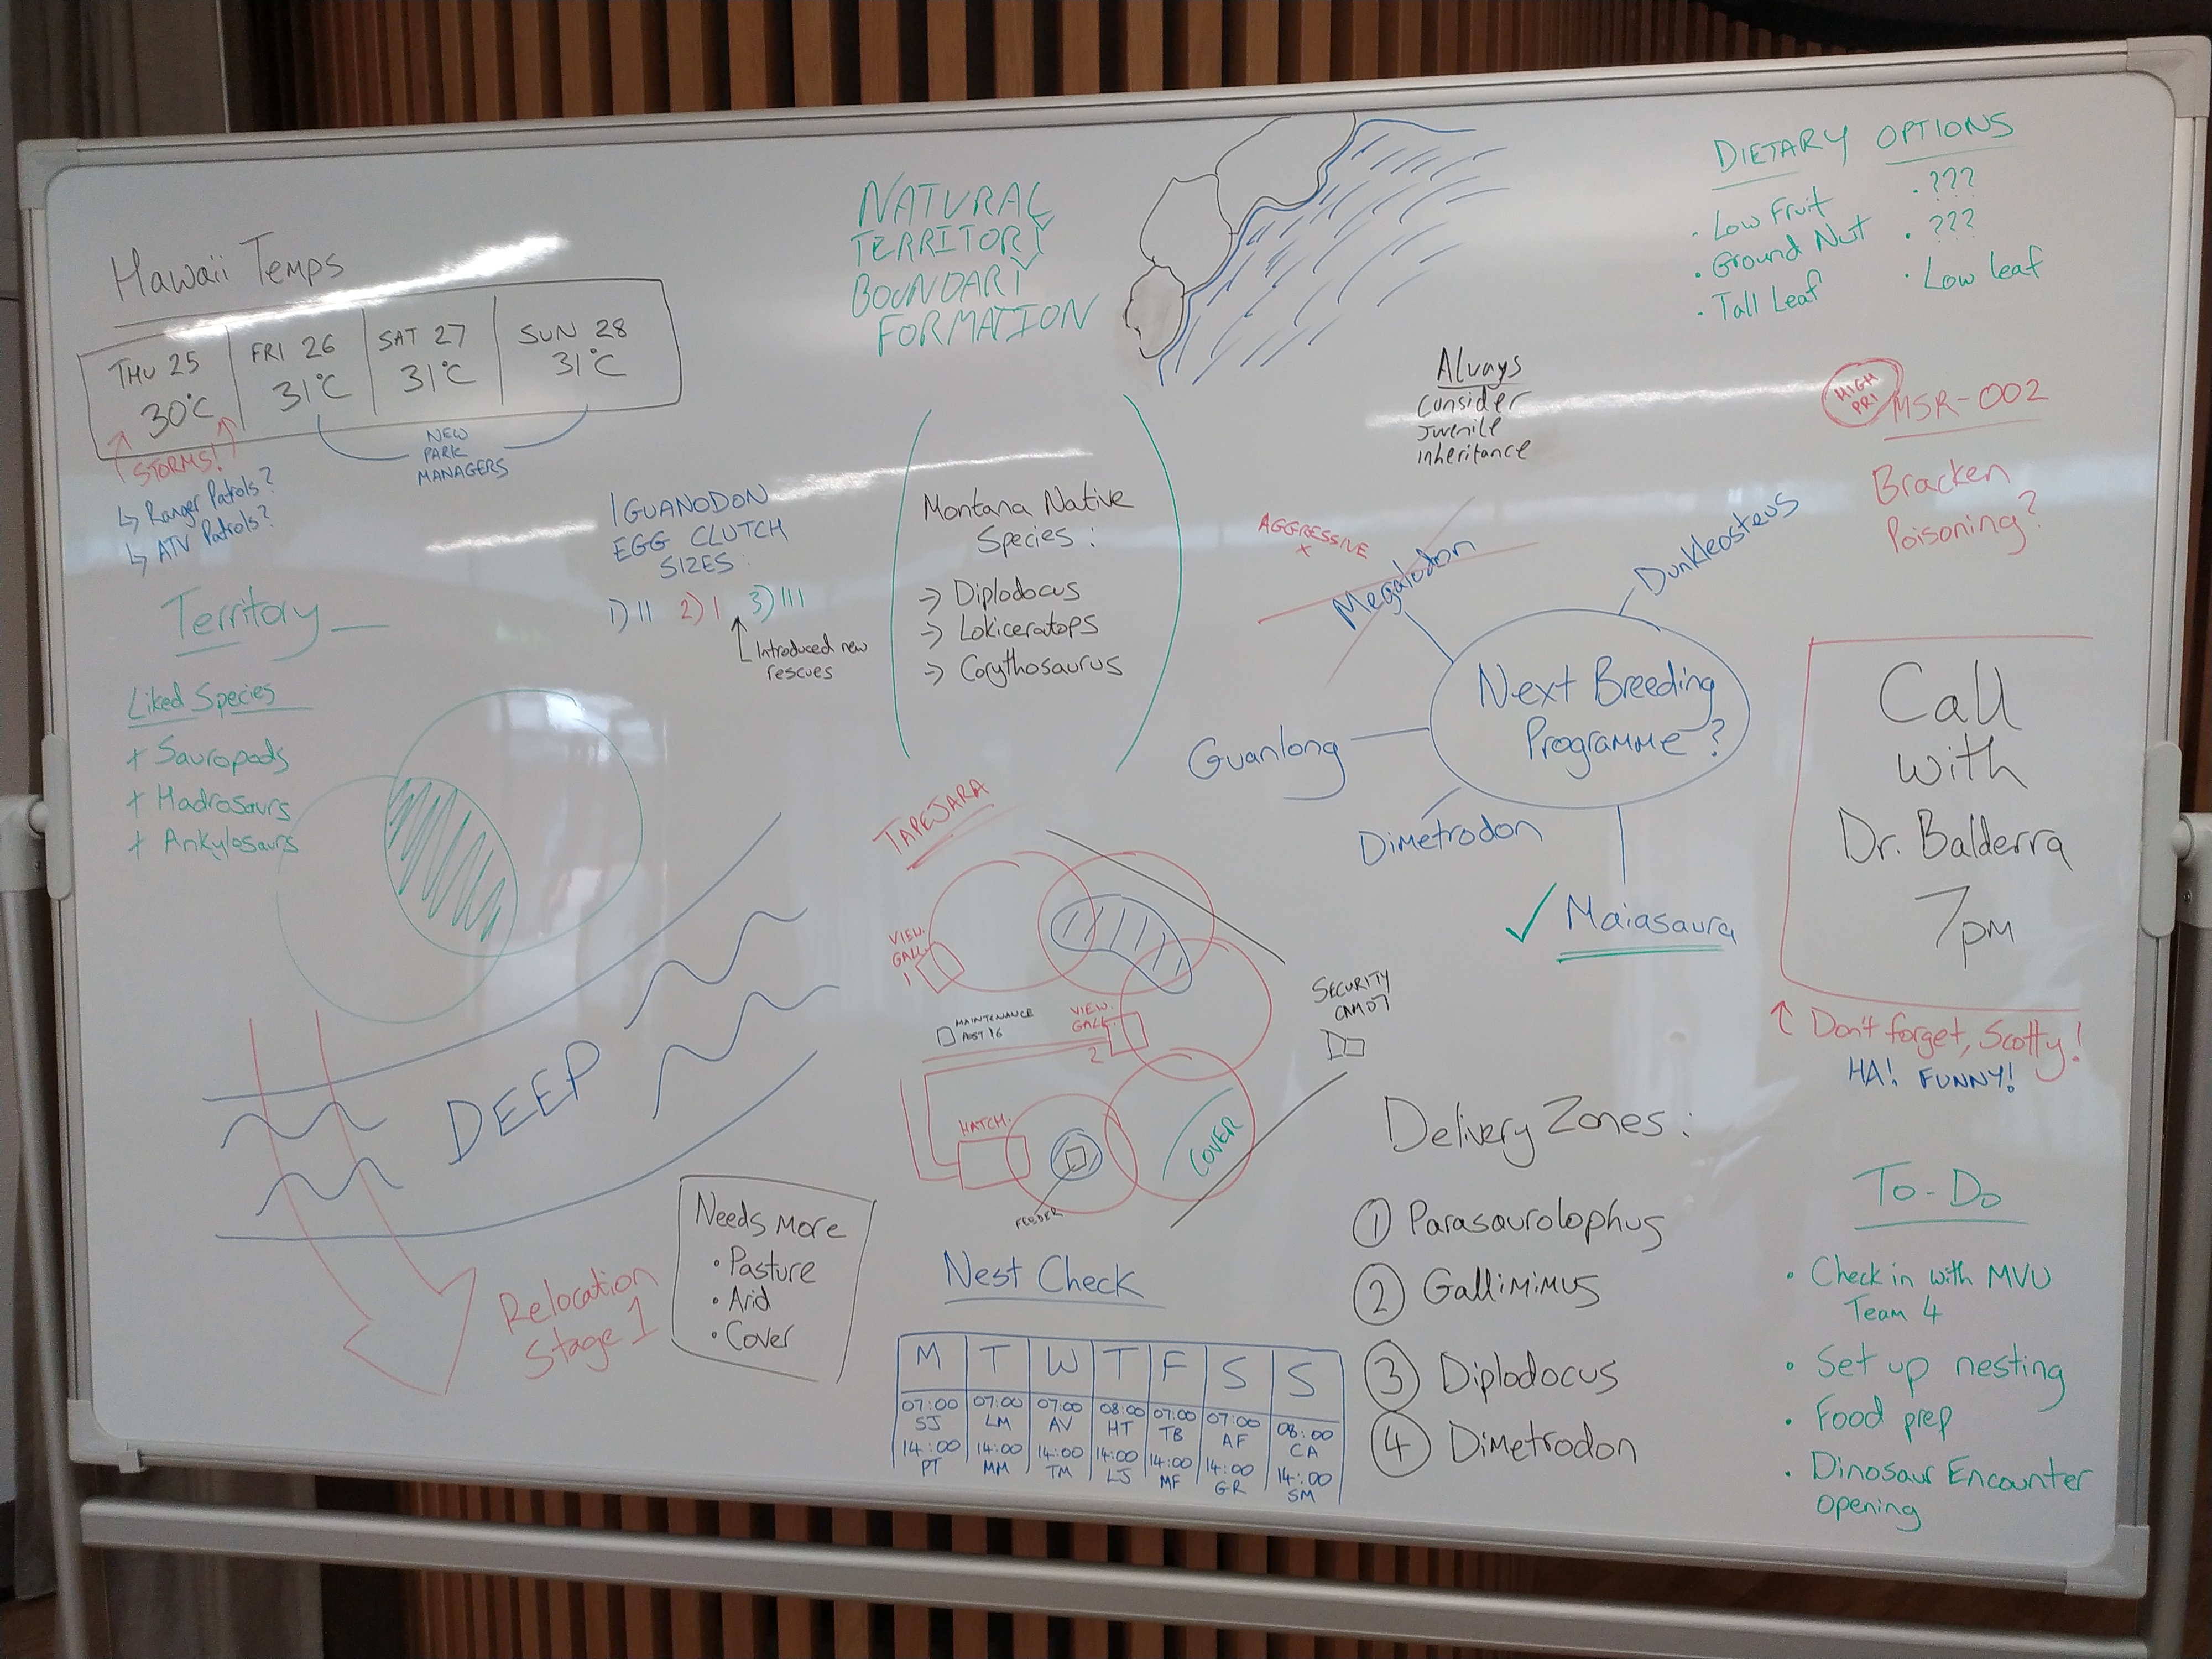 Hawaii Temps
THU 25 FRI 26 SAT 27 SUN 28
30°C 31°C 31°C 31°C
STORMS!
↳ Ranger Patrols?
↳ ATV Patrols?
NEW
PARK
MANAGERS
NATURAL
TERRITORY
BOUNDARY
FORMATION
DIETARY OPTIONS
· Low Fruit
· Ground Nut
· Tall Leaf
· ???
· ???
· Low leaf
Always
consider
juvenile
inheritance
HIGH
PRI
MSR-002
Bracken
Poisoning?
IGUANODON
EGG CLUTCH
SIZES:
1) II 2) I 3) III
Introduced new
rescues
Montana Native
Species:
→ Diplodocus
→ Lokiceratops
→ Corythosaurus
AGGRESSIVE
x
Megalodon
Dunkleosteus
Next Breeding
Programme?
Guanlong
Dimetrodon
✓ Maiasaura
Call
with
Dr. Balderra
7pm
↑ Don't forget, Scotty!
HA! FUNNY!
Territory
Liked Species
+ Sauropods
+ Hadrosaurs
+ Ankylosaurs
DEEP
Relocation
Stage 1
Needs More
· Pasture
· Arid
· Cover
TAPEJARA
VIEW.
GALL.
1
MAINTENANCE
POST 16
VIEW.
GALL.
2
SECURITY
CAM 07
HATCH.
FEEDER
COVER
Nest Check
M T W T F S S
07:00 07:00 07:00 08:00 07:00 07:00 08:00
SJ LM AV HT TB AF CA
14:00 14:00 14:00 14:00 14:00 14:00 14:00
PT MM TM LJ MF GR SM
Delivery Zones:
1 Parasaurolophus
2 Gallimimus
3 Diplodocus
4 Dimetrodon
To-Do
· Check in with MVU
Team 4
· Set up nesting
· Food prep
· Dinosaur Encounter
opening